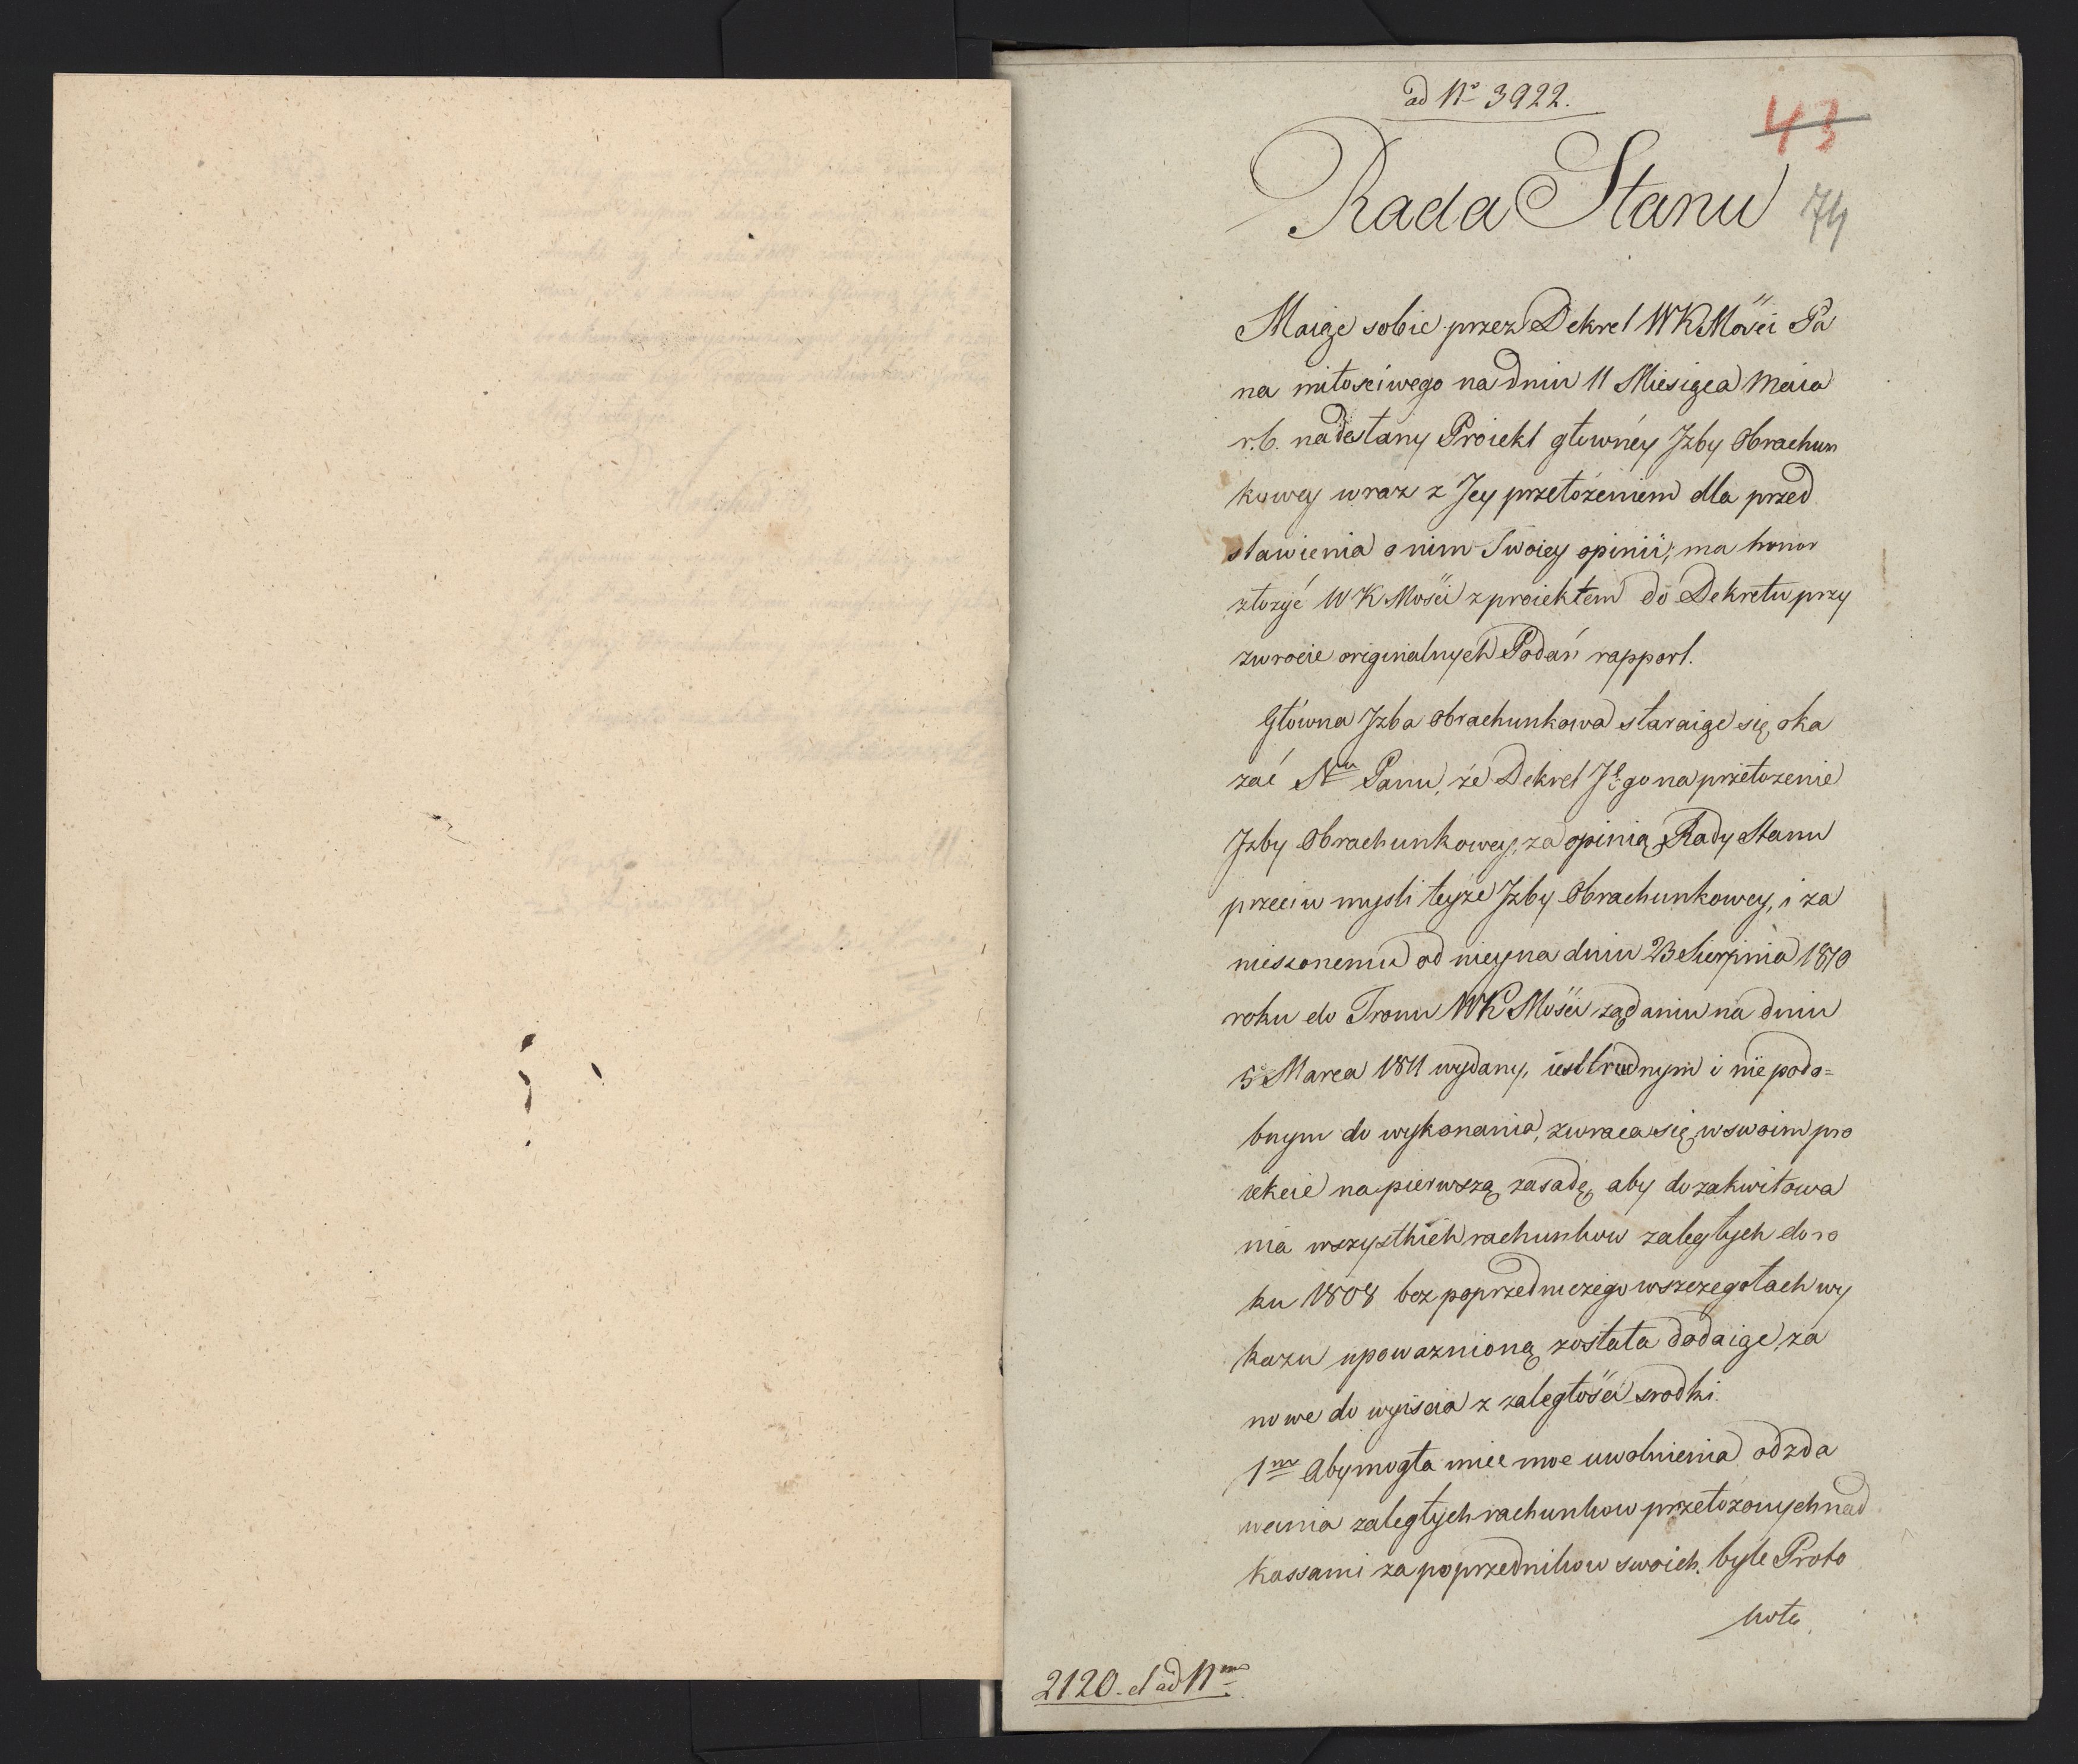 ad No 3922.
43
Rada Stanu
74
Maiąc sobie przez Dekret WKMości Pa
na miłościwego na dniu 11 Miesiąca Maia
r.b. nadesłany Proiekt głownéy Izby Obrachun
kowey wraz z Jey przełożeniem dla przed
stawienia o nim Swoiey opinii, ma honor
złożyć WKMości z proiektem do Dekretu przy
zwrocie originalnych Podań rapport.
Główna Izba Obrachunkowa staraiąc się oka
zać Nmu Panu, że Dekret Jego na przełożenie
Izby Obrachunkowey, za opinią Rady Stanu
przeciw mysli teyże Izby Obrachunkowey, i za
nieszonemu od niey na dniu 23 Sierpnia 1810
roku do Tronu WKMości żądaniu na dniu
5 Marca 1811 wydany, iest trudnym i niepodo=
bnym do wykonania, zwraca się w swoim pro
iekcie na pierwszą zasadę, aby do zakwitowa
nia wszystkich rachunkow zaległych do ro
ku 1808 bez poprzedniczego w szczegołach wy
kazu upoważnioną została dodaiąc za
nowe do wyiścia z zaległości srodki.
1mo Aby mogła mieć moc uwolnienia od zda
wania zaległych rachunkow przełożonych nad
kassami za poprzednikow swoich. byle Proto
kołe
2120 et ad Nm